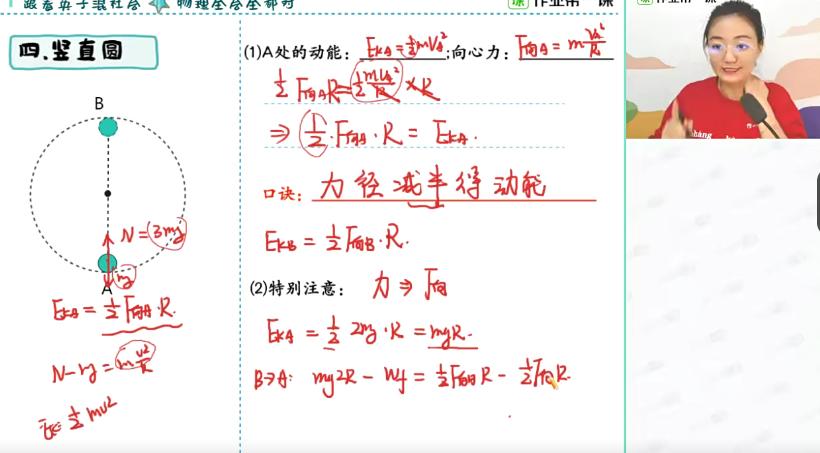 物理全合全部对
作业帮一课
四.竖直圆
B
N = 3mg
mg
A
EkA = 1/2 F向A·R.
N - mg = m v²/R
Ek = 1/2 mv²
(1)A处的动能: EkA = 1/2 mVA² ;向心力: F向A = m VA²/R
1/2 F向A R = 1/2 mVA²/R × R
⇒ 1/2 · F向A · R = EkA.
口诀: 力径减半得动能
EkB = 1/2 F向B · R.
(2)特别注意: 力 ⇒ F向
EkA = 1/2 2mg · R = mgR.
B→A: mg2R - Wf = 1/2 F向A R - 1/2 F向B R.